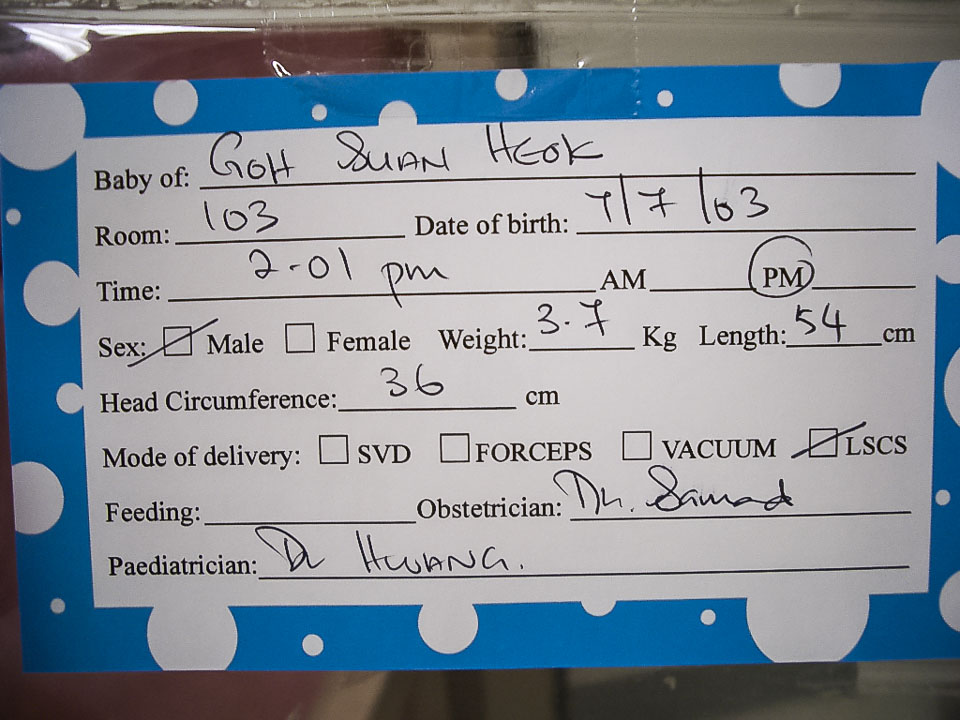 Baby of: GOH SUAN HEOK
Room: 103 Date of birth: 7/7/03
Time: 2-01 pm AM PM
Sex: Male Female Weight: 3.7 Kg Length: 54 cm
Head Circumference: 36 cm
Mode of delivery: SVD FORCEPS VACUUM LSCS
Feeding: Obstetrician: Dr. Samad
Paediatrician: Dr HWANG.